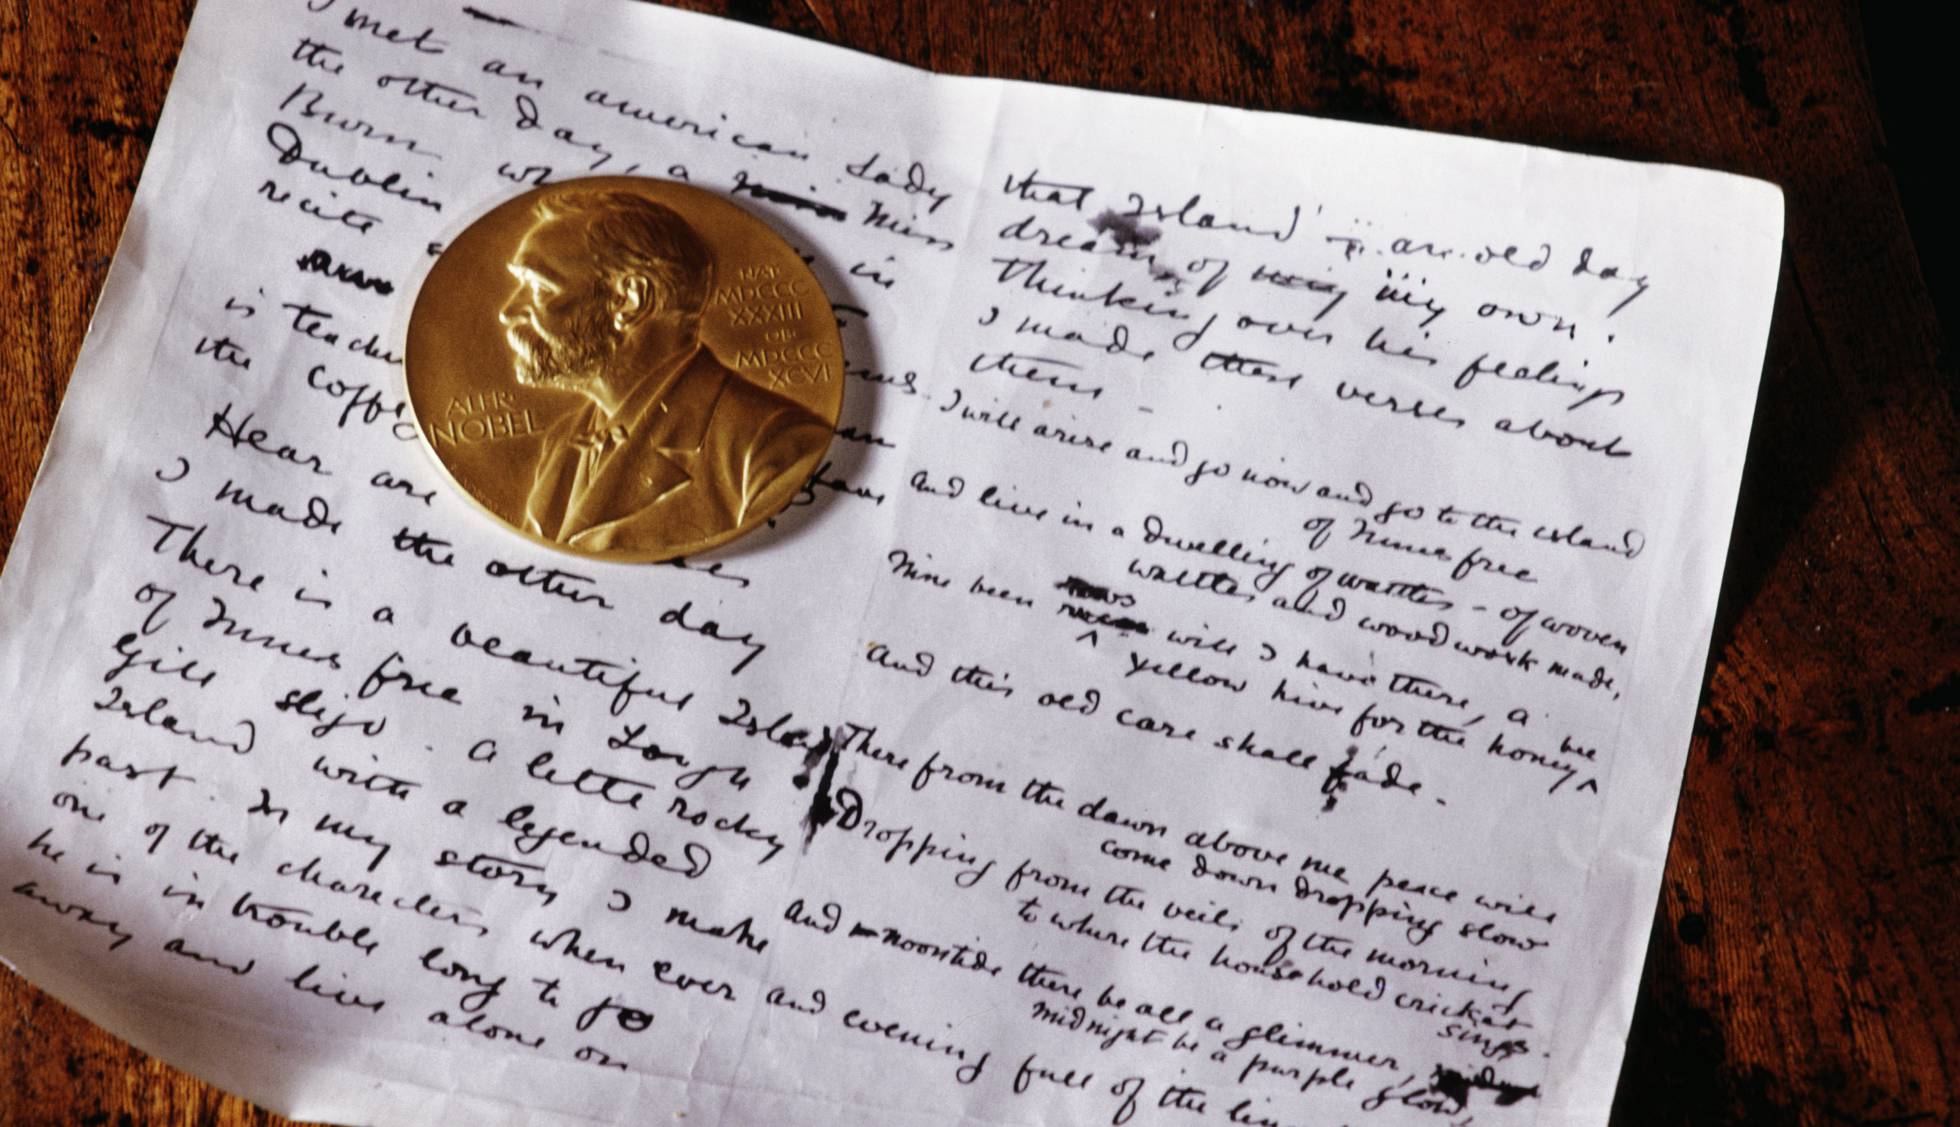 I met an american Lady
the other day, a Miss
Burn in
Dublin
recite
is
the coffe an
Hear are have
I made the other day
There is a beautiful Island
of Innis free in Lough
Gill Sligo. A little rocky
Island with a legended
past. In my story I make
one of the characters when ever
he is in trouble long to go
away and live alone on
ALFR·
NOBEL
NAT
MDCCC
XXXIII
OB
MDCCC
XCVI
that Island an old day
dream of my own.
Thinking over his feelings
I made these verses about
them -
I will arise and go now and go to the island
of Innis free
And live in a dwelling of wattles - of woven
wattles and wood work made,
Nine bean rows will I have there, a bee
yellow hive for the honey
And this old care shall fade.
There from the dawn above me peace will
come down dropping slow
Dropping from the veils of the morning
to where the household cricket
sings.
And noontide there be all a glimmer,
midnight be a purple glow,
and evening full of the